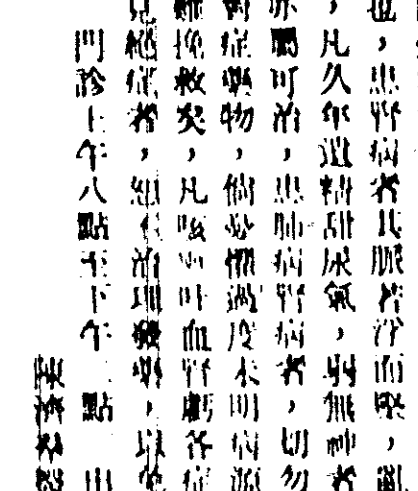 也，患腎病者其脈若浮而堅，亂
，凡久年遺精甜尿氣，弱無神者
亦屬可治，患肺病腎病者，切勿
症藥物，倘必慣過度未明病源
難挽救矣，凡咳血吐血腎虧各症
見絕症者，細心治理，以免
門診上午八點至下午二點出
陳濟